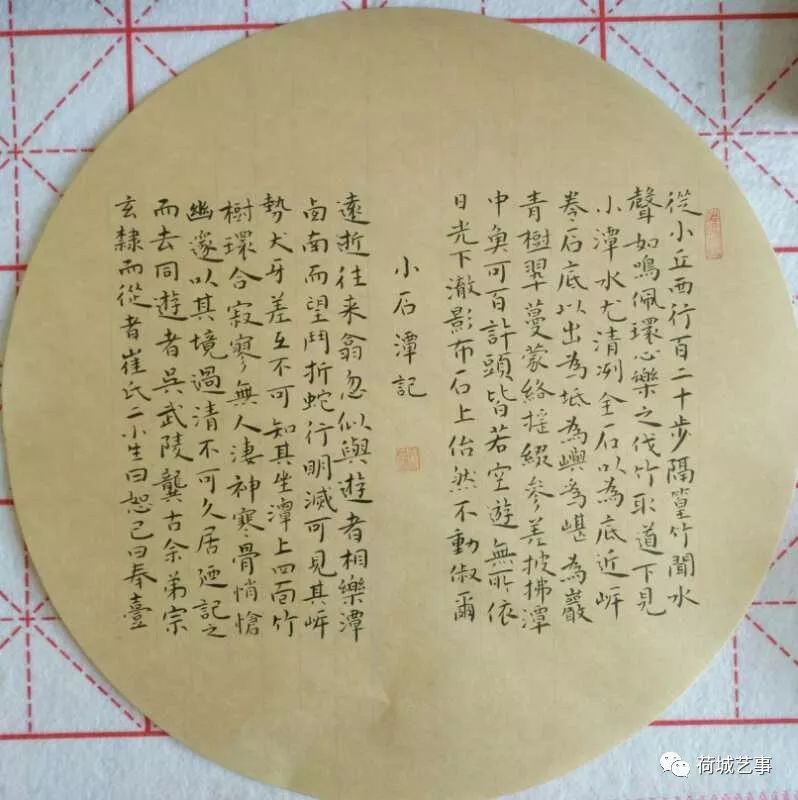 從小丘西行百二十步隔篁竹聞水
聲如鳴佩環心樂之伐竹取道下見
小潭水尤清冽全石以為底近岸
卷石底以出為坻為嶼為嵁為巖
青樹翠蔓蒙絡搖綴參差披拂潭
中魚可百許頭皆若空遊無所依
日光下澈影布石上佁然不動俶爾
小石潭記
遠逝往来翕忽似與遊者相樂潭
西南而望鬥折蛇行明滅可見其岸
勢犬牙差互不可知其坐潭上四面竹
樹環合寂寥無人淒神寒骨悄愴
幽邃以其境過清不可久居迺記之
而去同遊者吳武陵龔古余弟宗
玄隸而從者崔氏二小生曰恕己曰奉壹
荷城艺事